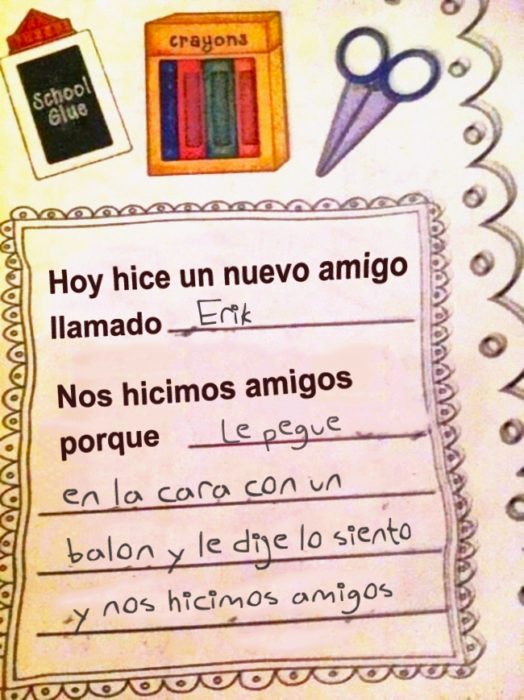 School
Glue
crayons
Hoy hice un nuevo amigo
llamado Erik
Nos hicimos amigos
porque Le pegue
en la cara con un
balon y le dije lo siento
y nos hicimos amigos